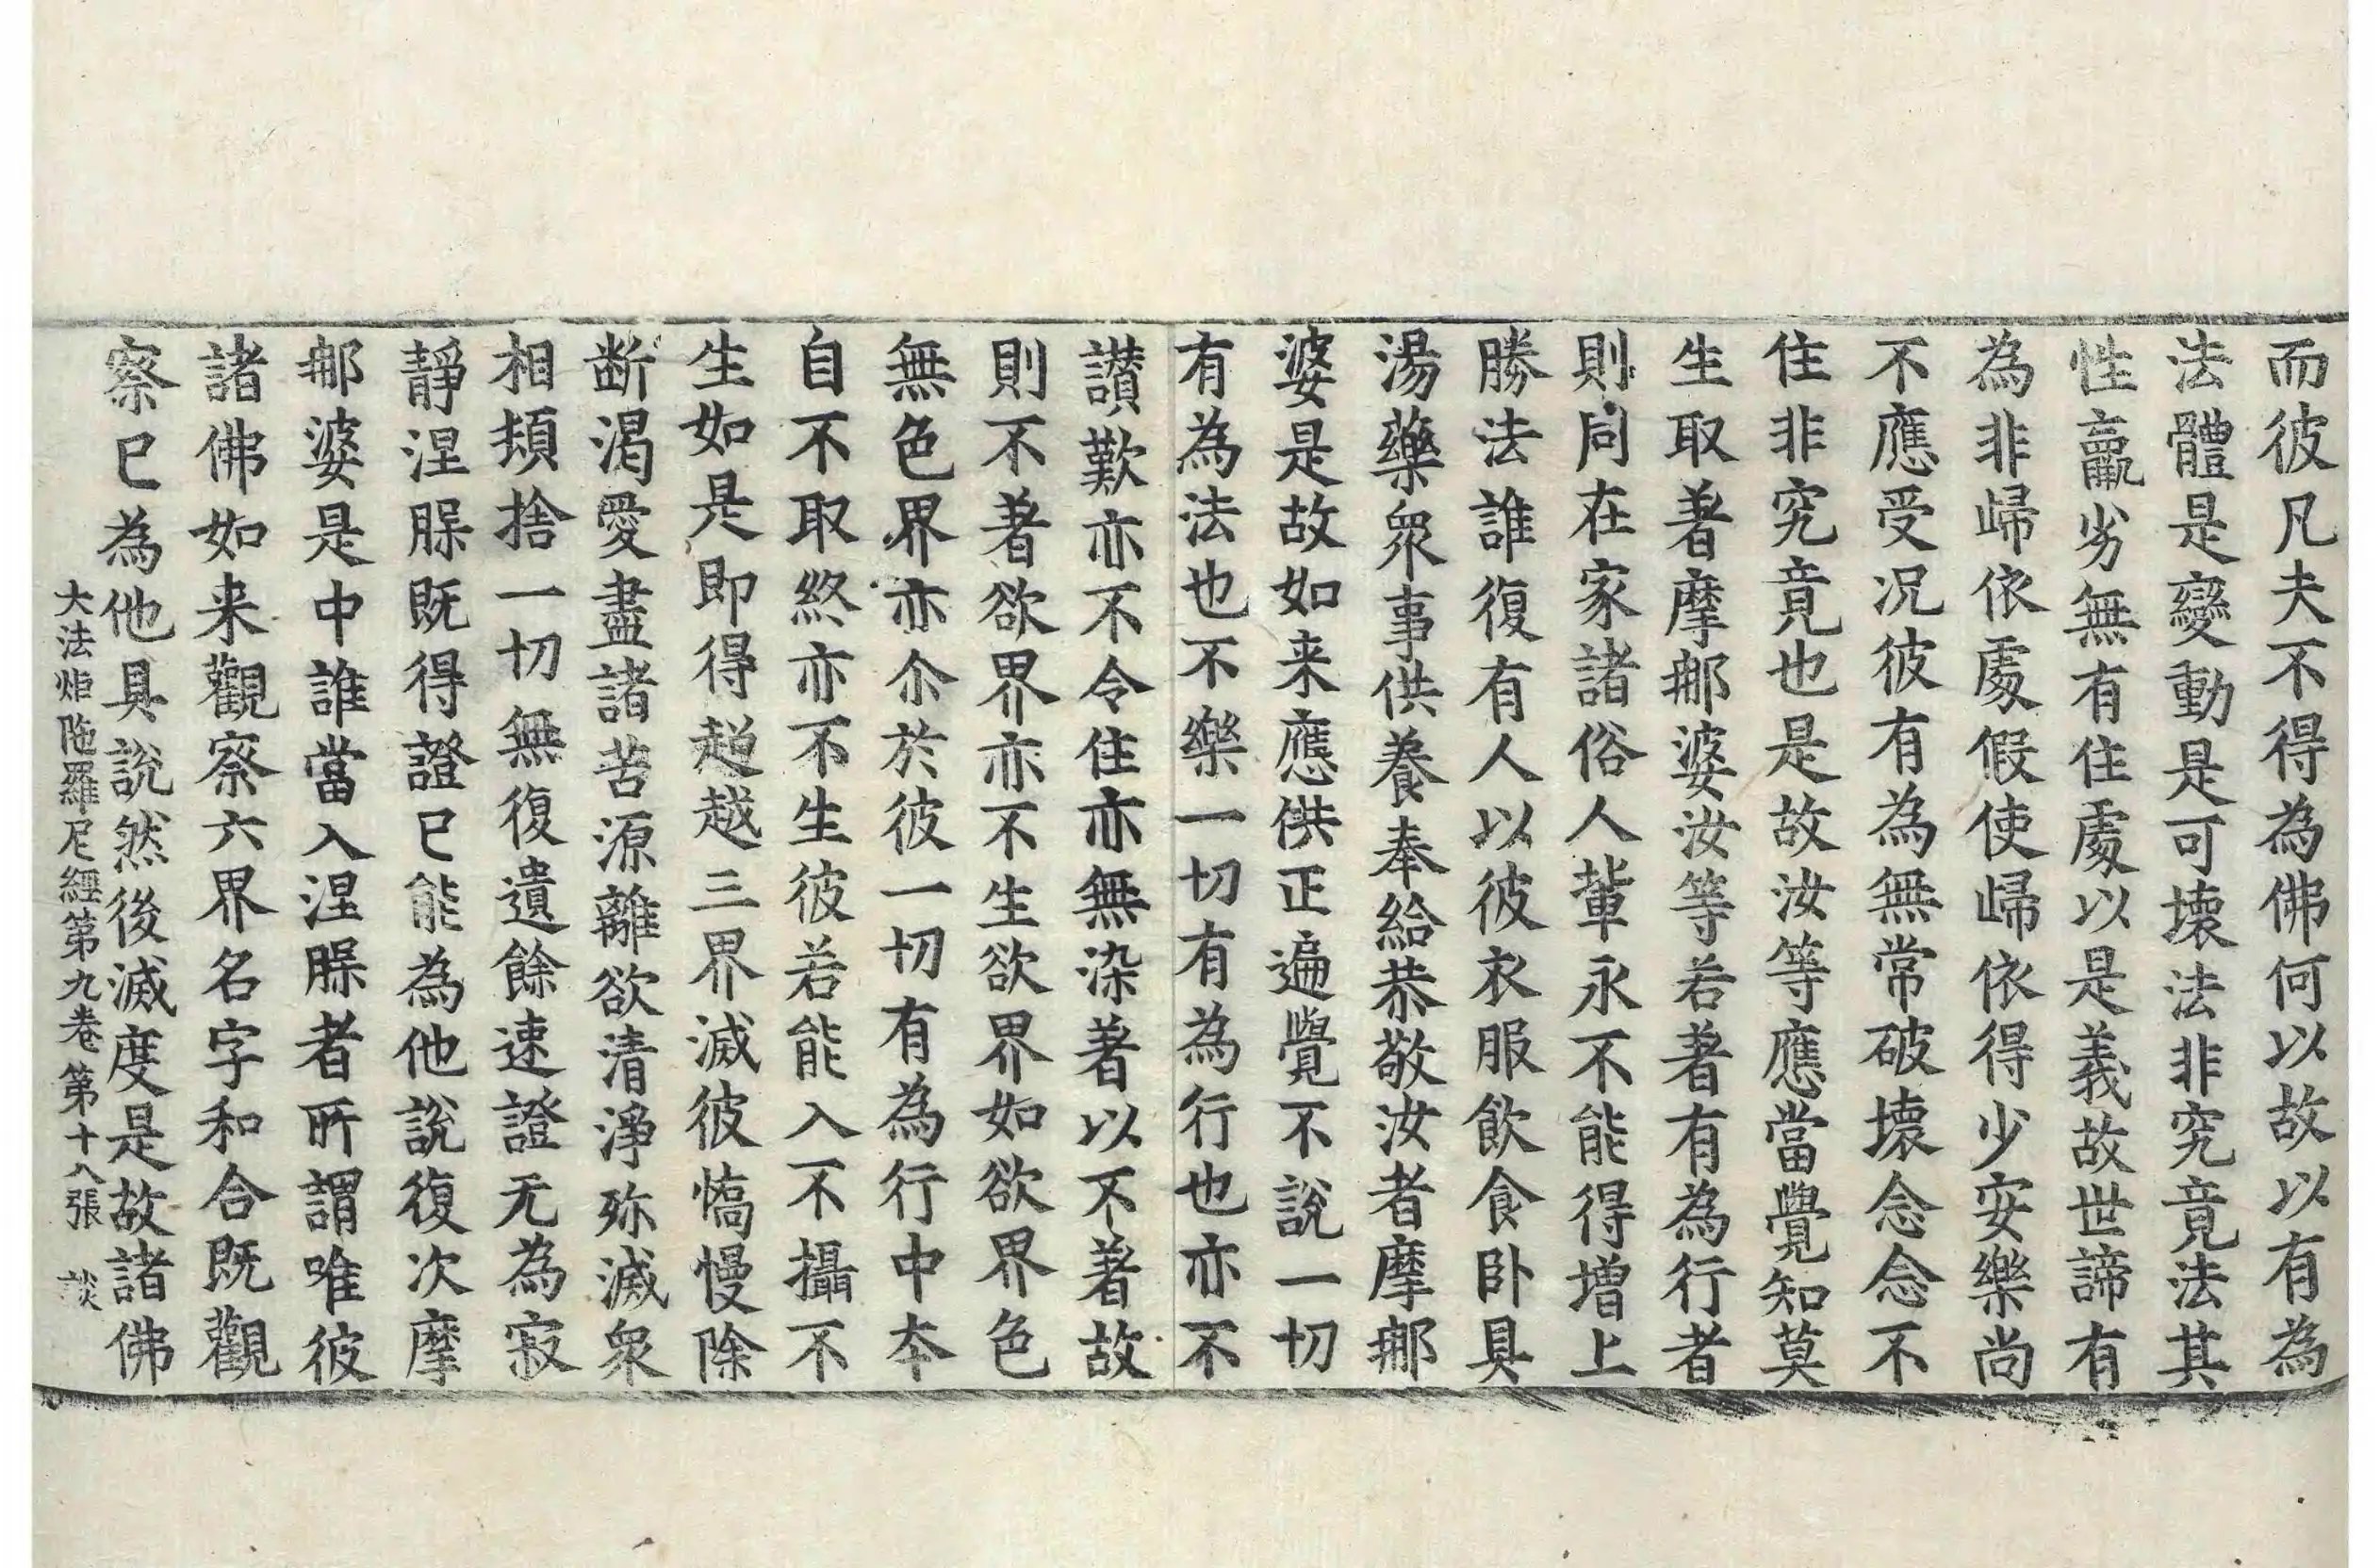 而彼凡夫不得為佛何以故以有為
法體是變動是可壞法非究竟法其
性羸劣無有住處以是義故世諦有
為非歸依處假使歸依得少安樂尚
不應受况彼有為無常破壞念念不
住非究竟也是故汝等應當覺知莫
生取著摩那婆汝等若著有為行者
則同在家諸俗人軰永不能得增上
勝法誰復有人以彼衣服飲食卧具
湯藥衆事供養奉給恭敬汝者摩那
婆是故如来應供正遍覺不說一切
有為法也不樂一切有為行也亦不
讃歎亦不令住亦無染著以不著故
則不著欲界亦不生欲界如欲界色
無色界亦尒於彼一切有為行中本
自不取終亦不生彼若能入不攝不
生如是即得超越三界滅彼憍慢除
断渴愛盡諸苦源離欲清淨殄滅衆
相類捨一切無復遺餘速證无為寂
靜涅槃既得證已能為他說復次摩
那婆是中誰當入涅槃者所謂唯彼
諸佛如来觀察六界名字和合既觀
察已為他具說然後滅度是故諸佛
大法炬陁羅尼經第九卷第十八張 談